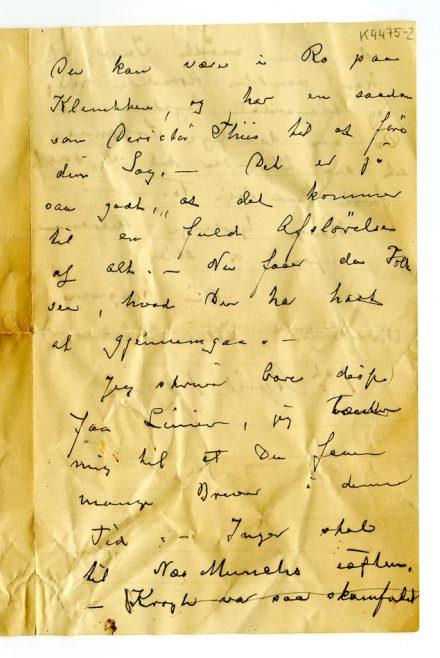 K4475-2
Du kan være i Ro paa
Klinikken, og har en saadan
som Director Thiis til at føre
din Sag. — Det er jo
saa godt, at det kommer
til en fuld Afsløring
af alt. — Nu faar da Folk
see, hvad Du har havt
at gjennemgaa. —
Jeg skriver bare disse
faa Linier, jeg tænker
mig til at Du faar
mange Breve i denne
Tid. — Inger skal
til Munchs iaften.
— Krogh var saa skamfuld